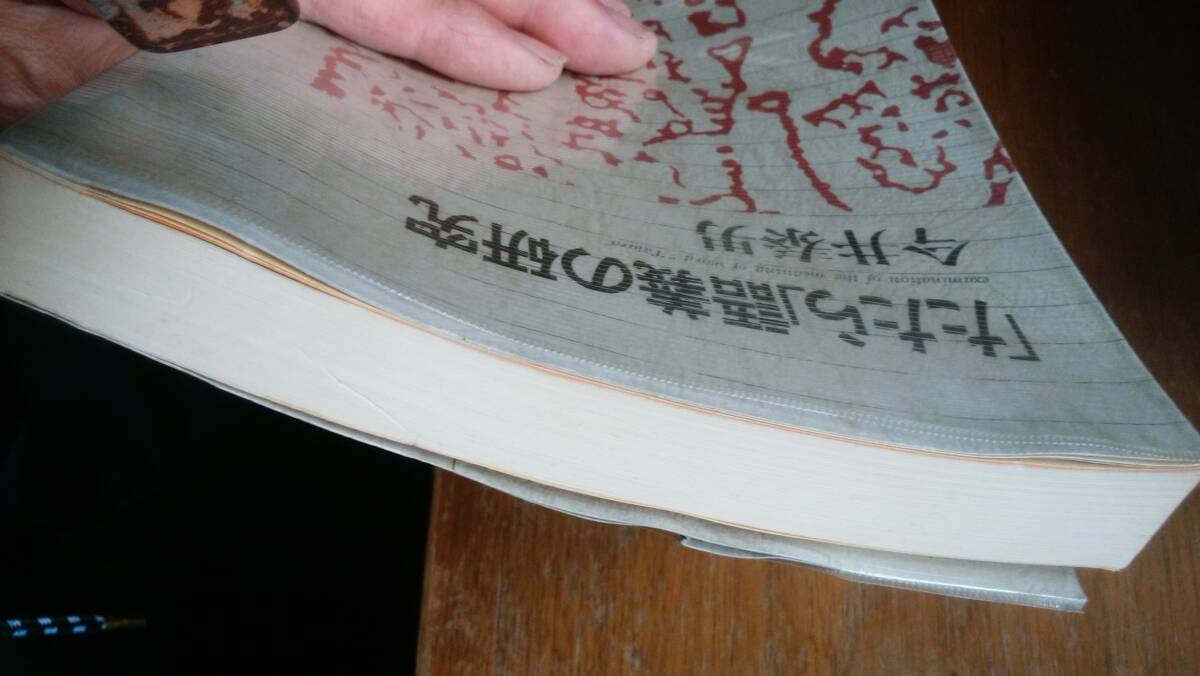 「たたら」語義の研究
examination of the meaning of word "Tatara"
今井泰男